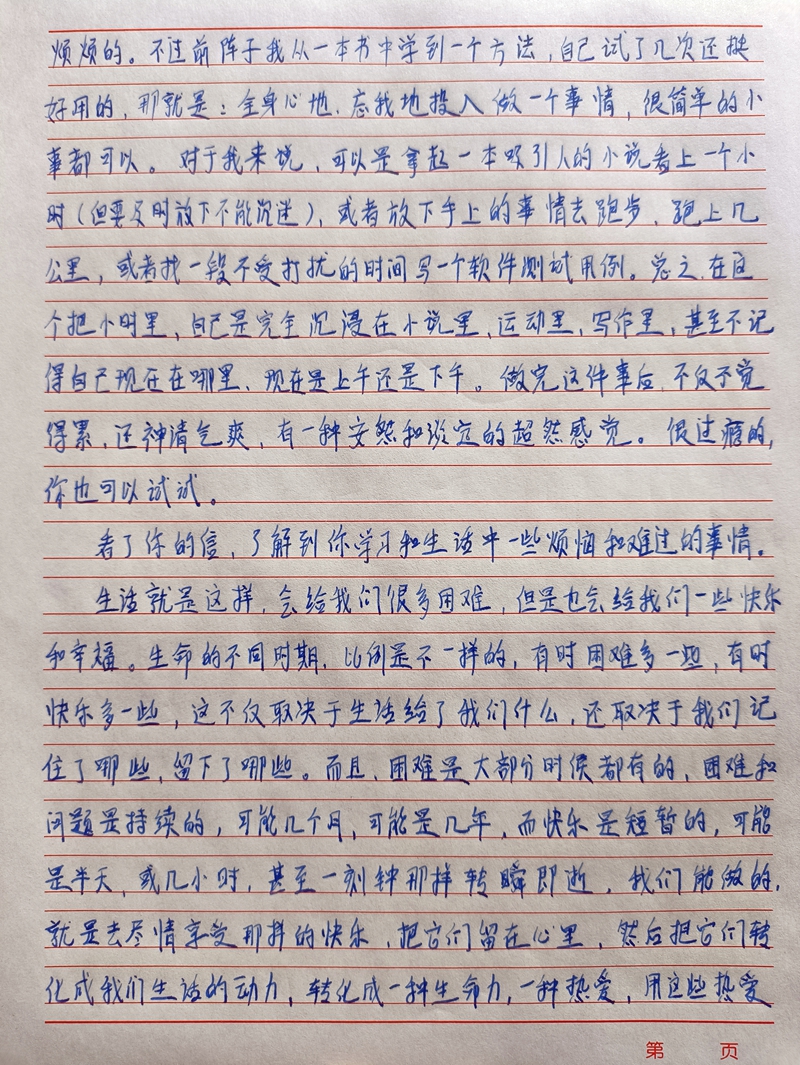 烦烦的。不过前阵子我从一本书中学到一个方法，自己试了几次还挺
好用的，那就是：全身心地、忘我地投入做一个事情，很简单的小
事都可以。对于我来说，可以是拿起一本吸引人的小说看上一个小
时（但要及时放下不能沉迷），或者放下手上的事情去跑步，跑上几
公里，或者找一段不受打扰的时间写一个软件测试用例。总之，在这
个把小时里，自己是完全沉浸在小说里、运动里，写作里，甚至不记
得自己现在在哪里、现在是上午还是下午。做完这件事后，不仅不觉
得累，还神清气爽，有一种安然和淡定的超然感觉。很过瘾的，
你也可以试试。
看了你的信，了解到你学习和生活中一些烦恼和难过的事情。
生活就是这样，会给我们很多困难，但是也会给我们一些快乐
和幸福。生命的不同时期，比例是不一样的，有时困难多一些，有时
快乐多一些，这不仅取决于生活给了我们什么，还取决于我们记
住了哪些，留下了哪些。而且，困难是大部分时侯都有的，困难和
问题是持续的，可能几个月，可能是几年，而快乐是短暂的，可能
是半天，或几小时，甚至一刻钟那样转瞬即逝，我们能做的，
就是去尽情享受那样的快乐，把它们留在心里，然后把它们转
化成我们生活的动力，转化成一种生命力，一种热爱，用这些热爱
第 页